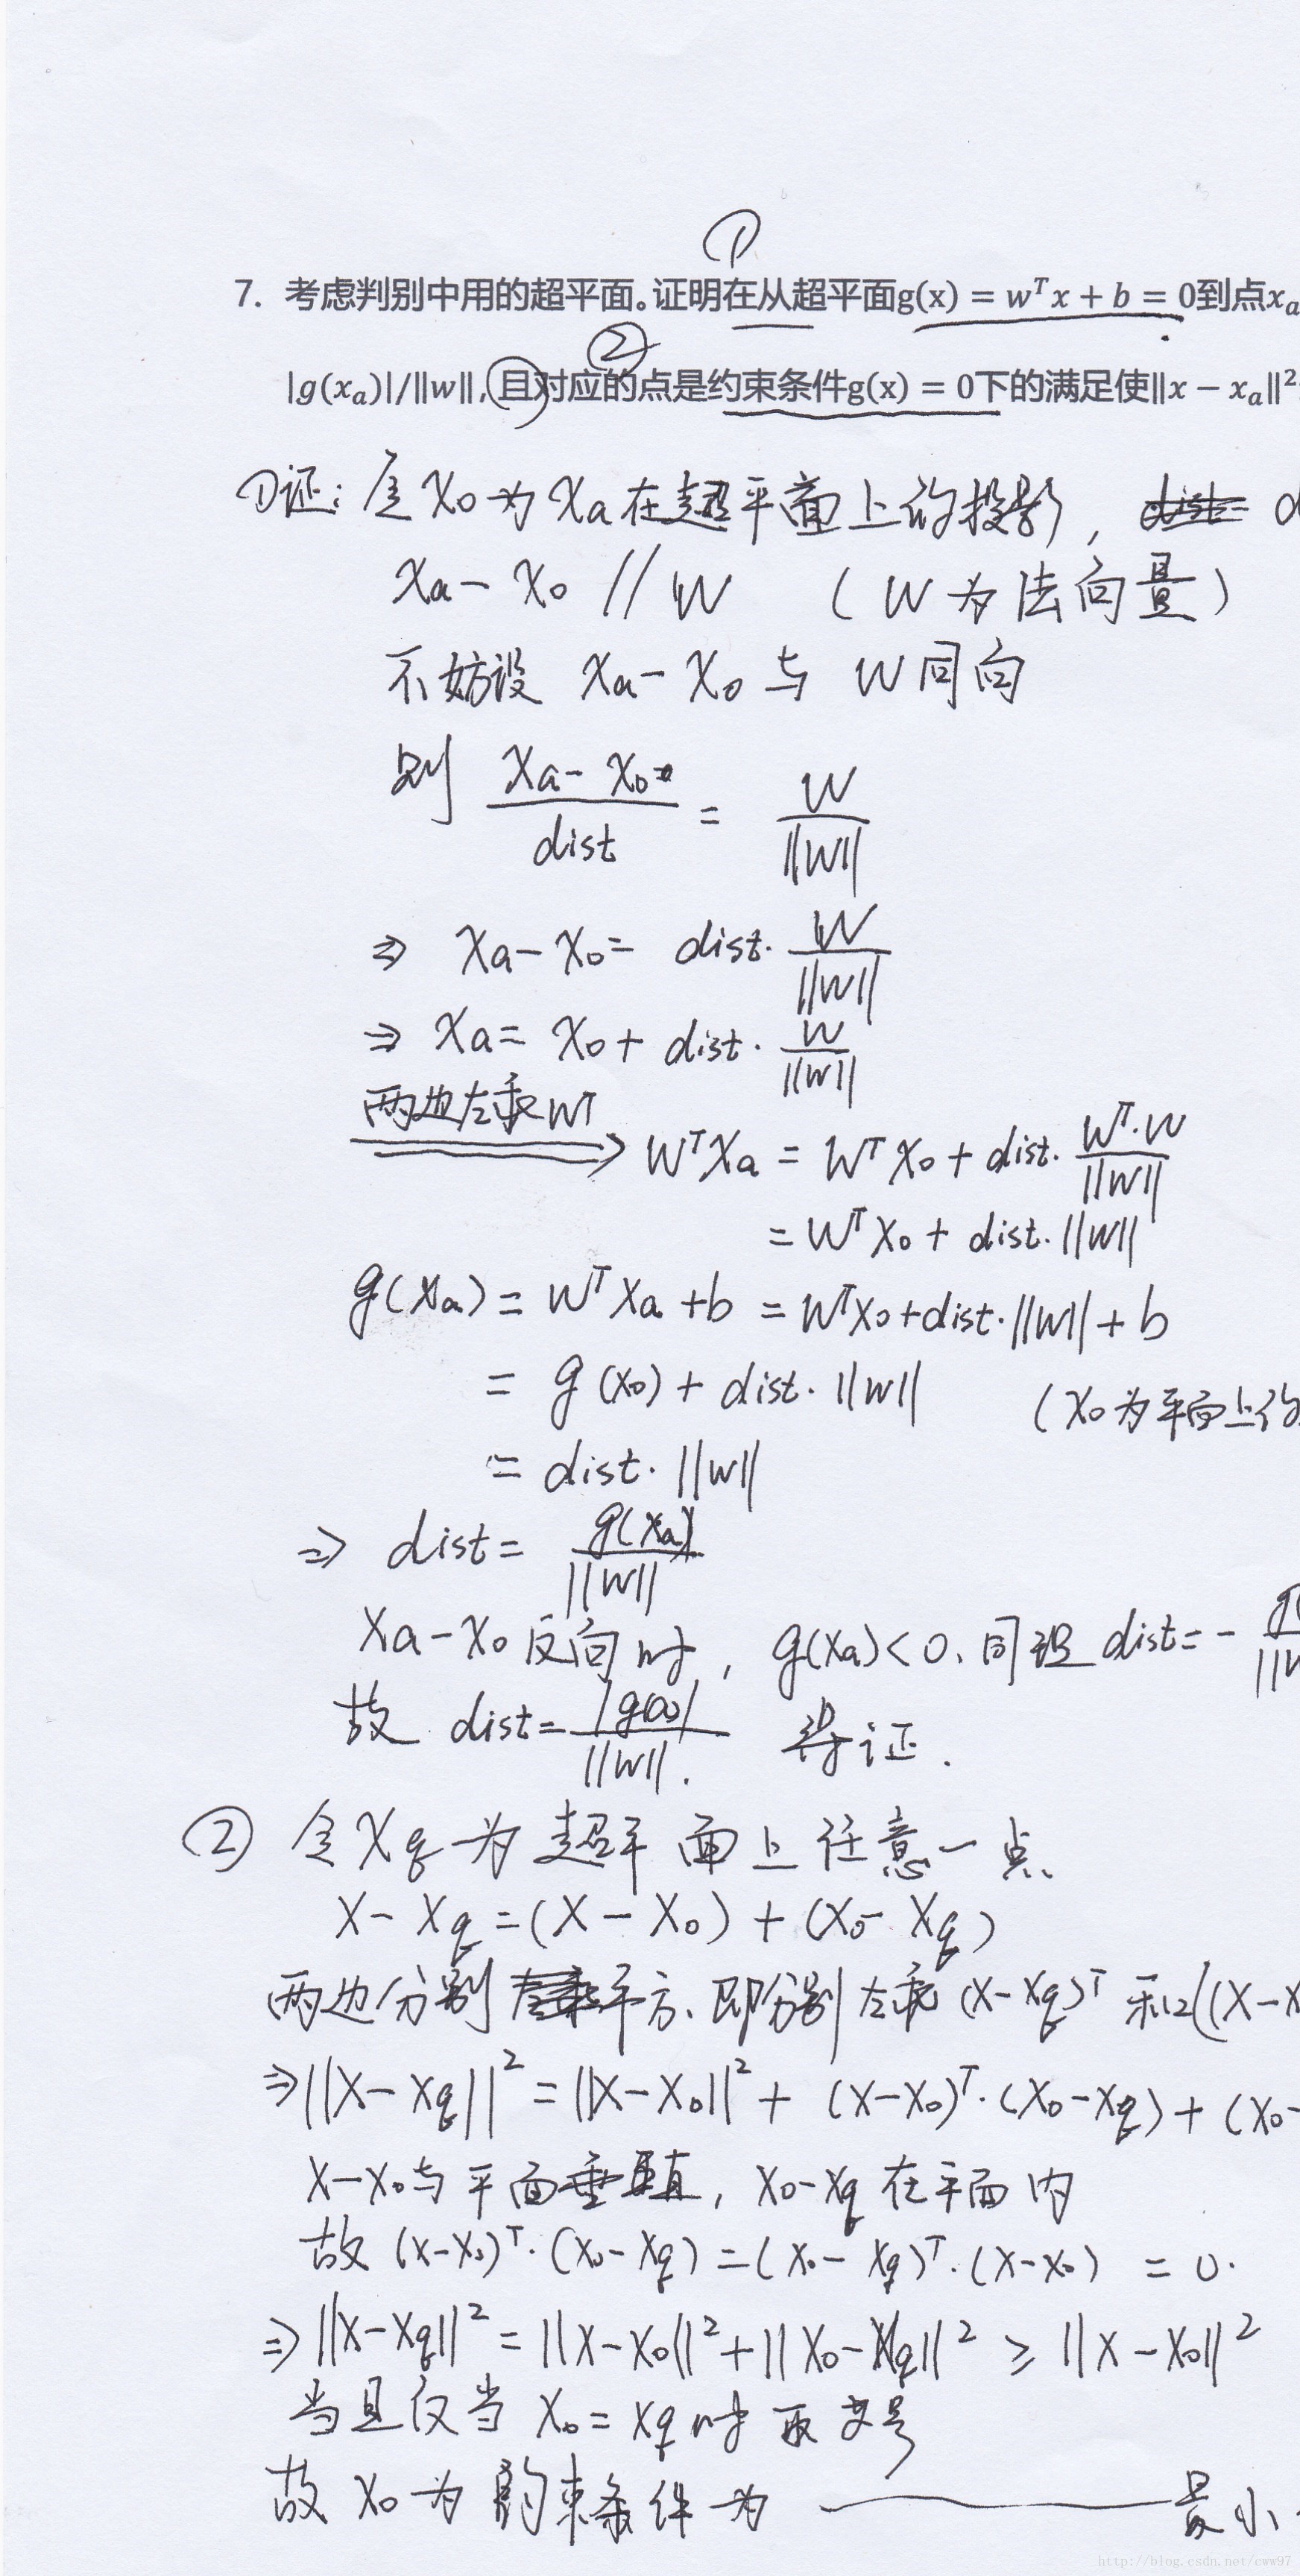 ①
7. 考虑判别中用的超平面。证明在从超平面g(x) = wᵀx + b = 0到点xₐ
②
|g(xₐ)|/‖w‖, 且对应的点是约束条件g(x) = 0下的满足使‖x − xₐ‖²
①证: 令 X₀ 为 Xa 在超平面上的投影,
Xa − X₀ // W (W 为法向量)
不妨设 Xa − X₀ 与 W 同向
则 (Xa − X₀)/dist = W/||W||
⇒ Xa − X₀ = dist · W/||W||
⇒ Xa = X₀ + dist · W/||W||
两边左乘Wᵀ
⇒ WᵀXa = WᵀX₀ + dist · Wᵀ·W/||W||
= WᵀX₀ + dist · ||W||
g(Xa) = WᵀXa + b = WᵀX₀ + dist · ||W|| + b
= g(X₀) + dist · ||W|| (X₀为平面上的
= dist · ||W||
⇒ dist = g(Xa)/||W||
Xa − X₀ 反向时, g(Xa) < 0, 同理 dist = −
故 dist = /||W||. 得证.
② 令 Xq 为超平面上任意一点
X − Xq = (X − X₀) + (X₀ − Xq)
两边分别平方、即分别左乘 (X − Xq)ᵀ 和 ((X − X
⇒ ||X − Xq||² = ||X − X₀||² + (X − X₀)ᵀ · (X₀ − Xq) + (X₀ −
X − X₀ 与平面垂直, X₀ − Xq 在平面内
故 (X − X₀)ᵀ · (X₀ − Xq) = (X₀ − Xq)ᵀ · (X − X₀) = 0.
⇒ ||X − Xq||² = ||X − X₀||² + ||X₀ − Xq||² ≥ ||X − X₀||²
当且仅当 X₀ = Xq 时取等号
故 X₀ 为约束条件为 —— 最小
http://blog.csdn.net/cww97